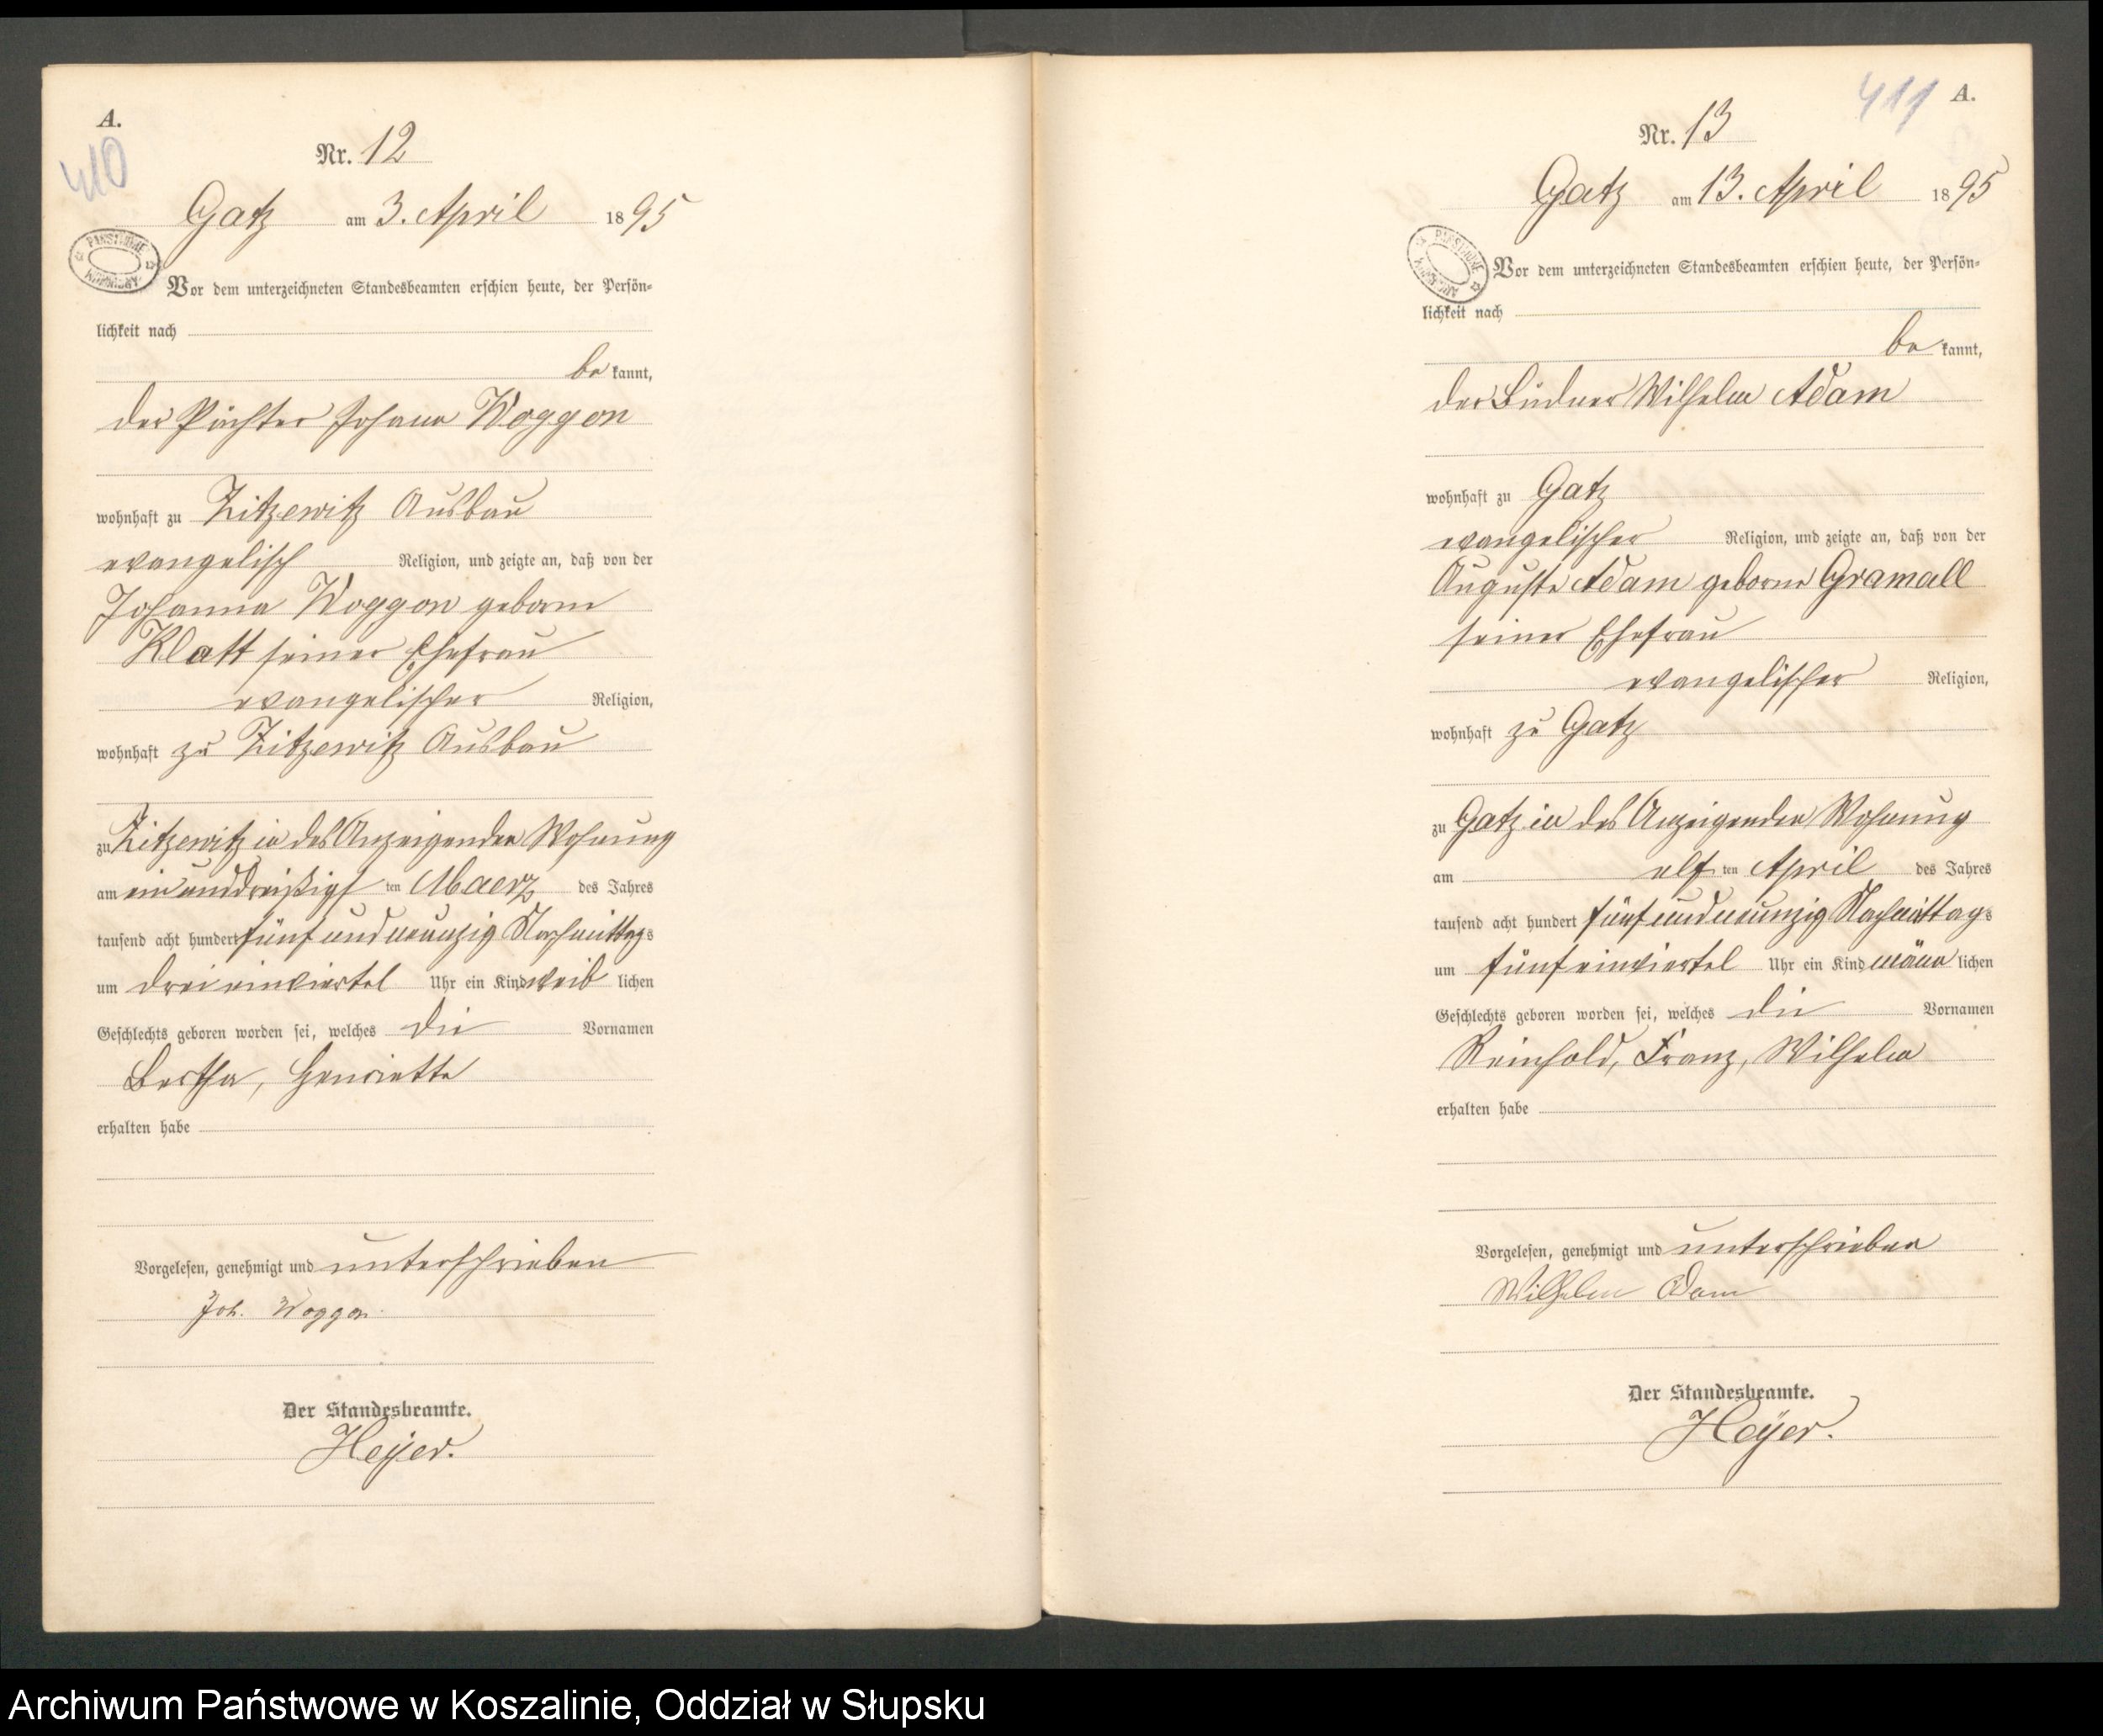 A.
410
Nr. 12
Gatz am 3. April 1895
PAŃSTWOWE ARCHIWUM
Vor dem unterzeichneten Standesbeamten erschien heute, der Persön-
lichkeit nach
be kannt,
der Pächter Johann Woggon
wohnhaft zu Zitzewitz Ausbau
evangelisch Religion, und zeigte an, daß von der
Johanna Woggon geborne
Klatt seiner Ehefrau
evangelischer Religion,
wohnhaft zu Zitzewitz Ausbau
zu Zitzewitz in des Anzeigenden Wohnung
am ein unddreißigs ten Maerz des Jahres
tausend acht hundert fünf und neunzig Nachmittags
um drei einviertel Uhr ein Kind weib lichen
Geschlechts geboren worden sei, welches die Vornamen
Bertha, Henriette
erhalten habe
Vorgelesen, genehmigt und unterschrieben
Joh. Woggon.
Der Standesbeamte.
Heyer.
411 A.
Nr. 13
Gatz am 13. April 1895
PAŃSTWOWE ARCHIWUM
Vor dem unterzeichneten Standesbeamten erschien heute, der Persön-
lichkeit nach
be kannt,
der Büdner Wilhelm Adam
wohnhaft zu Gatz
evangelischer Religion, und zeigte an, daß von der
Auguste Adam geborne Gramall
seiner Ehefrau
evangelischer Religion,
wohnhaft zu Gatz
zu Gatz in des Anzeigenden Wohnung
am elf ten April des Jahres
tausend acht hundert fünf und neunzig Nachmittags
um fünf einviertel Uhr ein Kind männ lichen
Geschlechts geboren worden sei, welches die Vornamen
Reinhold, Franz, Wilhelm
erhalten habe
Vorgelesen, genehmigt und unterschrieben
Wilhelm Adam
Der Standesbeamte.
Heyer.
Archiwum Państwowe w Koszalinie, Oddział w Słupsku